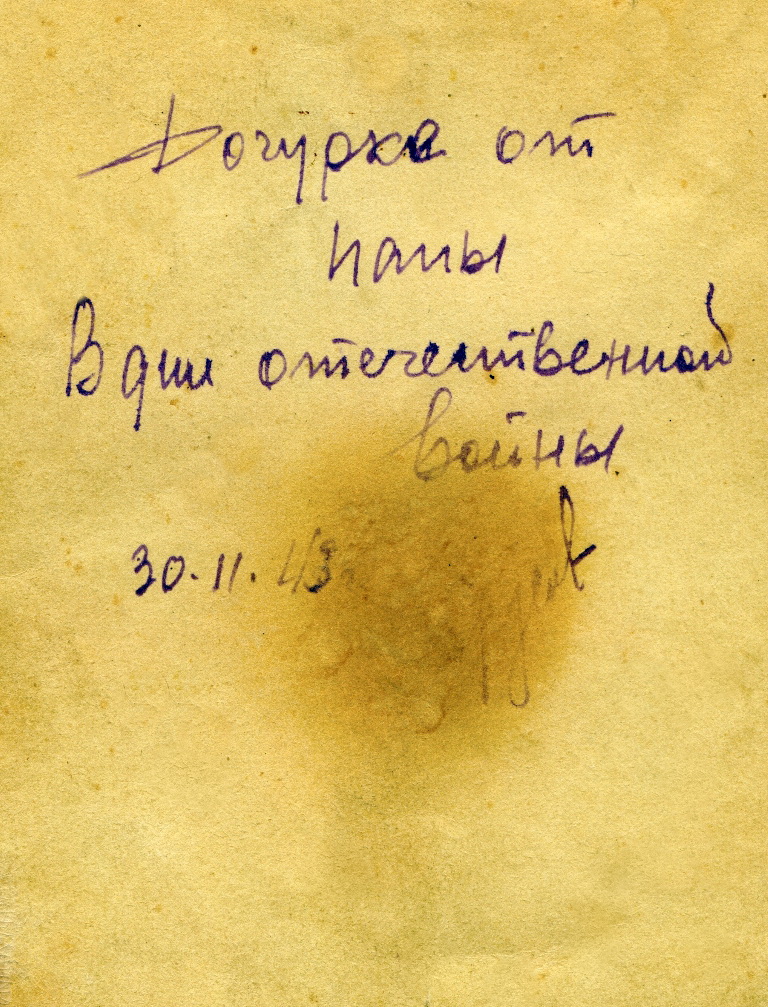 Дочурке от
папы
В дни отечественной
войны
30.11.43